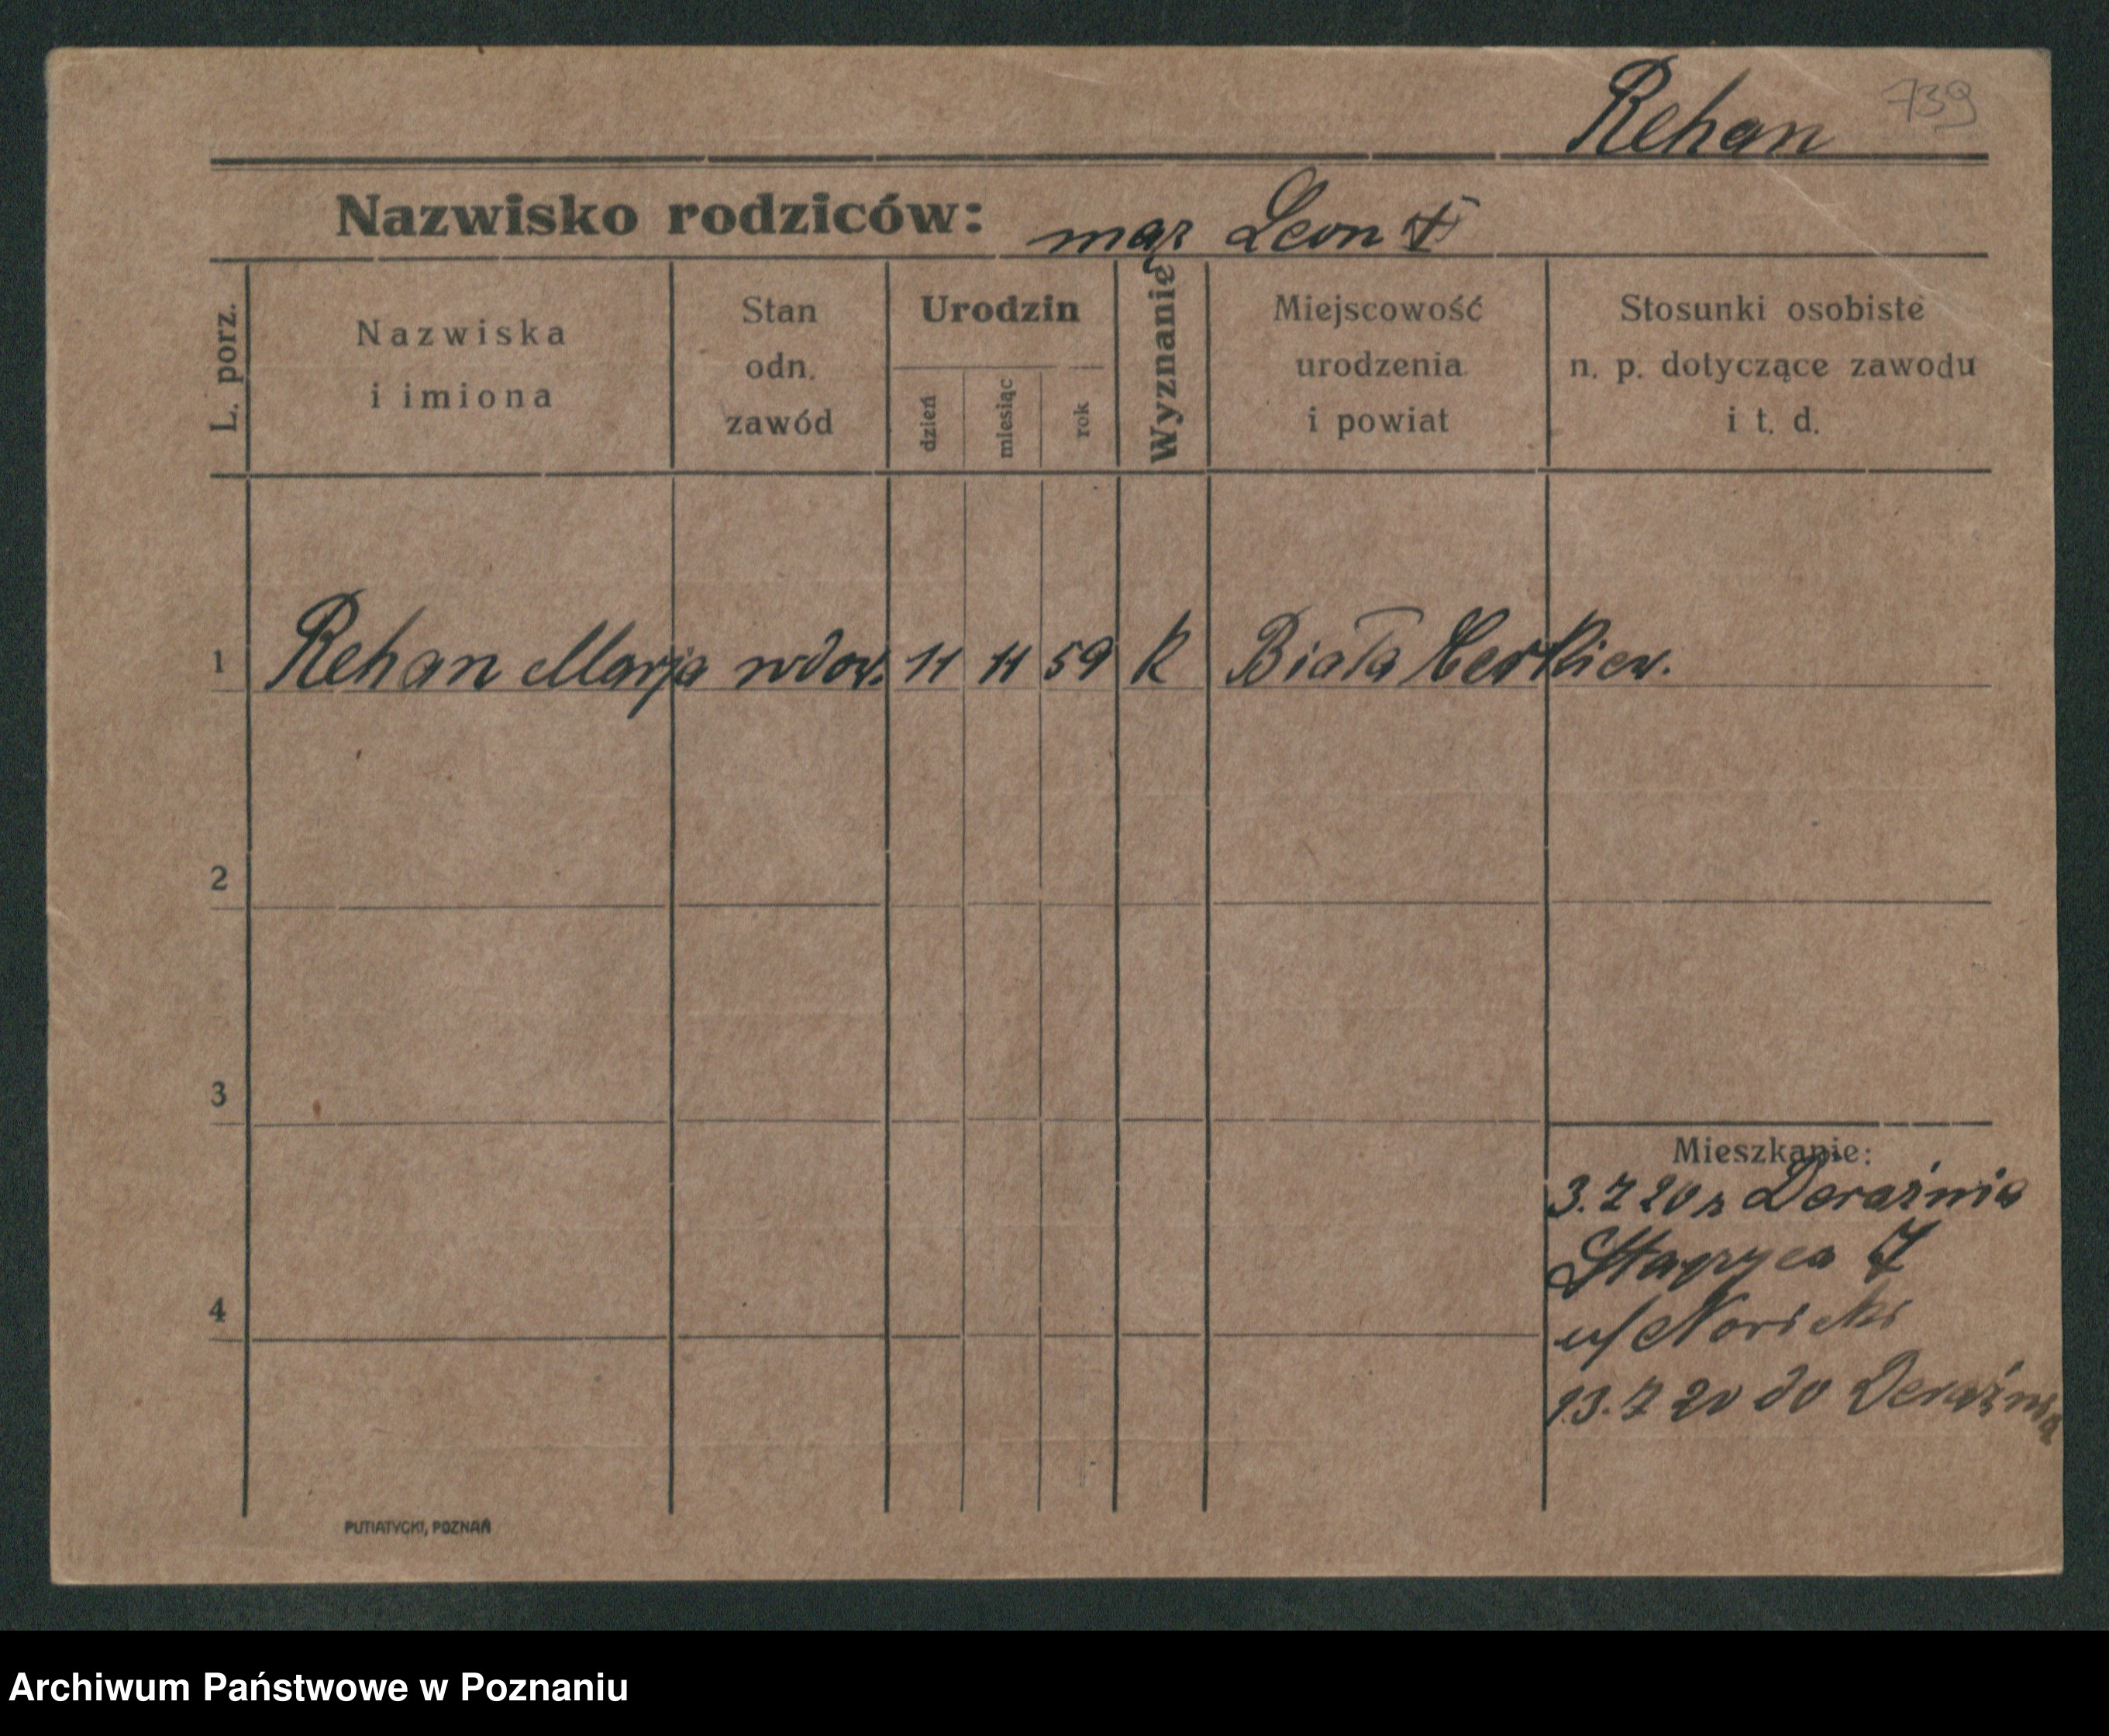 Rehan 739
Nazwisko rodziców: mąż Leon †
L. porz.
Nazwiska
i imiona
Stan
odn.
zawód
Urodzin
dzień
miesiąc
rok
Wyznanie
Miejscowość
urodzenia
i powiat
Stosunki osobiste
n. p. dotyczące zawodu
i t. d.
1 Rehan Marja wdow. 11 11 59 k Biała
2
3
4
Mieszkanie:
3. 7 20 z Deraźnia
7
u/
13. 7 20 do Deraźnia
PUTIATYCKI, POZNAŃ
Archiwum Państwowe w Poznaniu